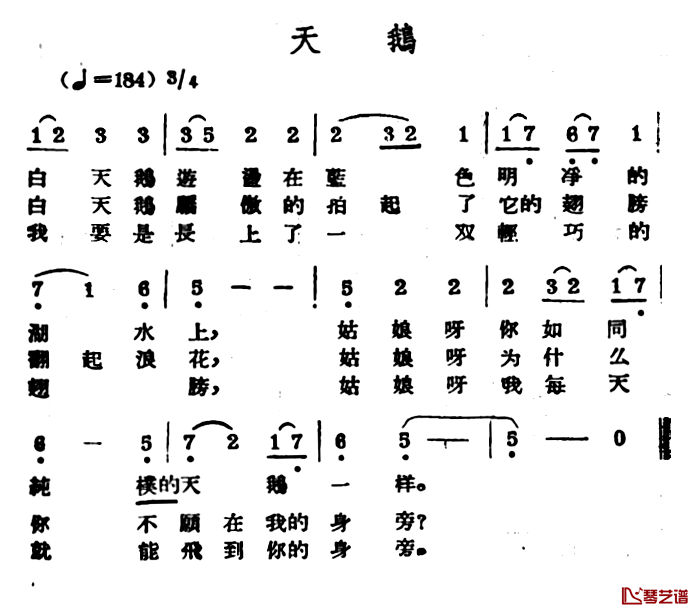 天 鵝
(♩=184) 3/4
1 2 3 3 | 3 5 2 2 | 2 3 2 1 | 1 7 6 7 1 |
白 天 鵝 遊 盪 在 藍 色 明 凈 的
白 天 鵝 驕 傲 的 拍 起 了 它的 翅 膀
我 要 是 長 上 了 一 双 輕 巧 的
7 1 6 | 5 — — | 5 2 2 | 2 3 2 1 7 |
湖 水 上， 姑 娘 呀 你 如 同
翻 起 浪 花， 姑 娘 呀 为 什 么
翅 膀， 姑 娘 呀 我 每 天
6 — 5 | 7 2 1 7 | 6 5 — | 5 — 0
純 樸的 天 鵝 一 样。
你 不 願 在 我的 身 旁？
就 能 飛 到 你的 身 旁。
琴艺谱